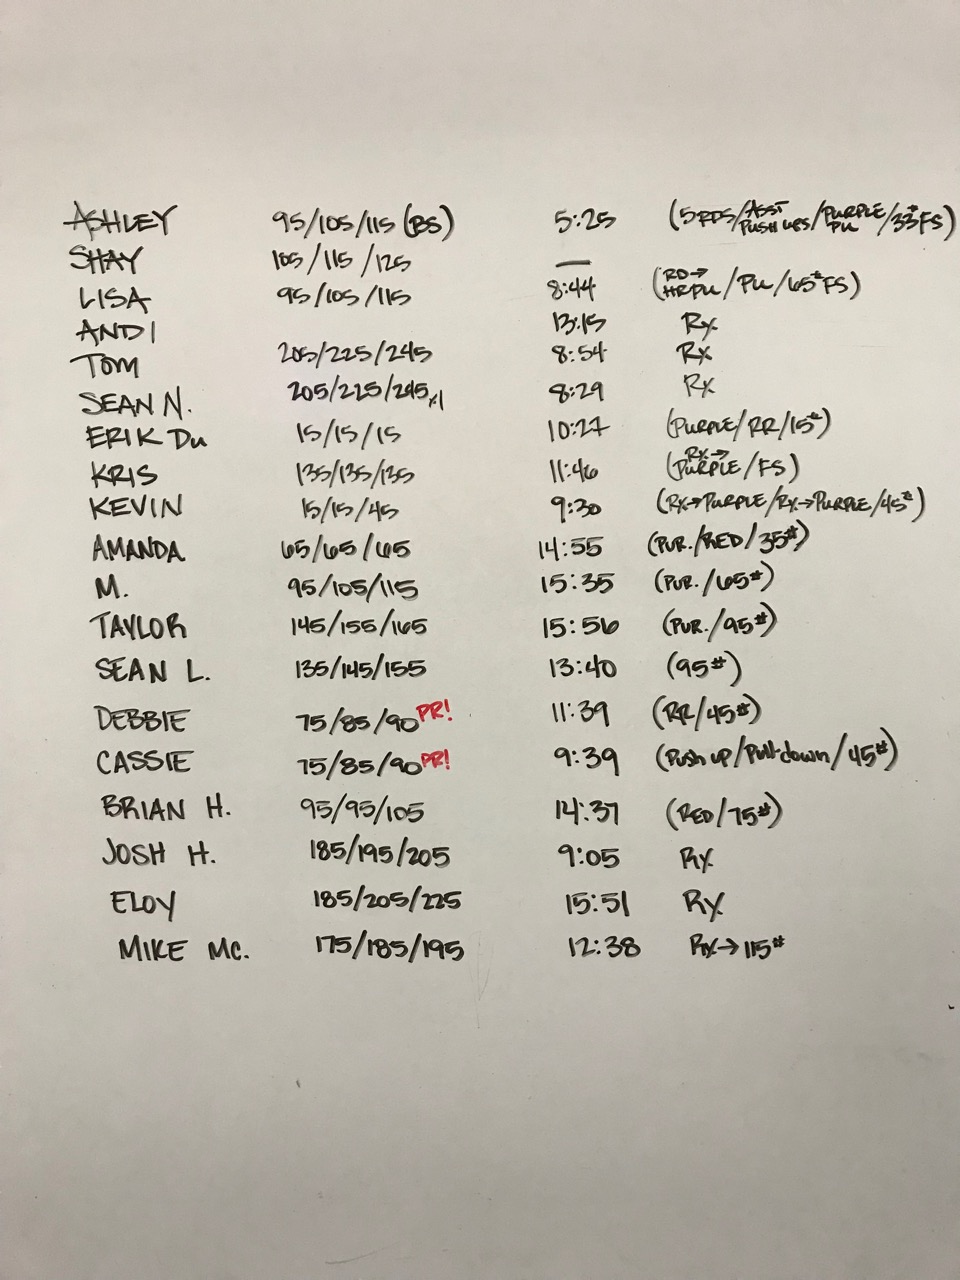 ASHLEY 95/105/115 (BS) 5:25 (5RDS/ASST PUSH UPS/PURPLE PU/33# FS)
SHAY 105/115/125 —
LISA 95/105/115 8:44 (RD→HRPU/PU/65# FS)
ANDI 13:15 Rx
TOM 205/225/245 8:54 Rx
SEAN N. 205/225/245x1 8:29 Rx
ERIK Du 15/15/15 10:27 (PURPLE/RR/15#)
KRIS 135/135/135 11:46 (RX→PURPLE/FS)
KEVIN 15/15/45 9:30 (RX→PURPLE/RX→PURPLE/45#)
AMANDA 65/65/65 14:55 (PUR./RED/35#)
M. 95/105/115 15:35 (PUR./65#)
TAYLOR 145/155/165 15:56 (PUR./95#)
SEAN L. 135/145/155 13:40 (95#)
DEBBIE 75/85/90 PR! 11:39 (RR/45#)
CASSIE 75/85/90 PR! 9:39 (Push up/Pull-down/45#)
BRIAN H. 95/95/105 14:37 (RED/75#)
JOSH H. 185/195/205 9:05 RX
ELOY 185/205/225 15:51 RX
MIKE MC. 175/185/195 12:38 RX→115#